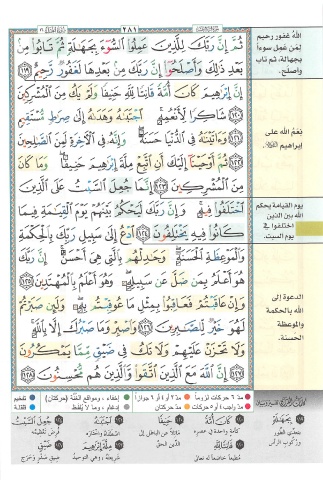 ٢٨١
ثُمَّ إِنَّ رَبَّكَ لِلَّذِينَ عَمِلُوا۟ ٱلسُّوٓءَ بِجَهَـٰلَةٍ ثُمَّ تَابُوا۟ مِنۢ
بَعْدِ ذَٰلِكَ وَأَصْلَحُوٓا۟ إِنَّ رَبَّكَ مِنۢ بَعْدِهَا لَغَفُورٌ رَّحِيمٌ ١١٩
إِنَّ إِبْرَٰهِيمَ كَانَ أُمَّةً قَانِتًا لِّلَّهِ حَنِيفًا وَلَمْ يَكُ مِنَ ٱلْمُشْرِكِينَ
١٢٠ شَاكِرًا لِّأَنْعُمِهِ ۚ ٱجْتَبَىٰهُ وَهَدَىٰهُ إِلَىٰ صِرَٰطٍ مُّسْتَقِيمٍ
١٢١ وَءَاتَيْنَـٰهُ فِى ٱلدُّنْيَا حَسَنَةً ۖ وَإِنَّهُۥ فِى ٱلْـَٔاخِرَةِ لَمِنَ ٱلصَّـٰلِحِينَ
١٢٢ ثُمَّ أَوْحَيْنَآ إِلَيْكَ أَنِ ٱتَّبِعْ مِلَّةَ إِبْرَٰهِيمَ حَنِيفًا ۖ وَمَا كَانَ
مِنَ ٱلْمُشْرِكِينَ ١٢٣ إِنَّمَا جُعِلَ ٱلسَّبْتُ عَلَى ٱلَّذِينَ
ٱخْتَلَفُوا۟ فِيهِ ۚ وَإِنَّ رَبَّكَ لَيَحْكُمُ بَيْنَهُمْ يَوْمَ ٱلْقِيَـٰمَةِ فِيمَا
كَانُوا۟ فِيهِ يَخْتَلِفُونَ ١٢٤ ٱدْعُ إِلَىٰ سَبِيلِ رَبِّكَ بِٱلْحِكْمَةِ
وَٱلْمَوْعِظَةِ ٱلْحَسَنَةِ ۖ وَجَـٰدِلْهُم بِٱلَّتِى هِىَ أَحْسَنُ ۚ إِنَّ رَبَّكَ
هُوَ أَعْلَمُ بِمَن ضَلَّ عَن سَبِيلِهِۦ ۖ وَهُوَ أَعْلَمُ بِٱلْمُهْتَدِينَ ١٢٥
وَإِنْ عَاقَبْتُمْ فَعَاقِبُوا۟ بِمِثْلِ مَا عُوقِبْتُم بِهِۦ ۖ وَلَئِن صَبَرْتُمْ
لَهُوَ خَيْرٌ لِّلصَّـٰبِرِينَ ١٢٦ وَٱصْبِرْ وَمَا صَبْرُكَ إِلَّا بِٱللَّهِ ۚ
وَلَا تَحْزَنْ عَلَيْهِمْ وَلَا تَكُ فِى ضَيْقٍ مِّمَّا يَمْكُرُونَ
١٢٧ إِنَّ ٱللَّهَ مَعَ ٱلَّذِينَ ٱتَّقَوا۟ وَّٱلَّذِينَ هُم مُّحْسِنُونَ ١٢٨
الله غفور رحيم
لمن عمل سوءاً
بجهالة، ثم تاب
وأصلح.
نعم الله على
إبراهيم
يوم القيامة يحكم
الله بين الذين
اختلفوا في
يوم السبت.
الدعوة إلى
الله بالحكمة
والموعظة
الحسنة.